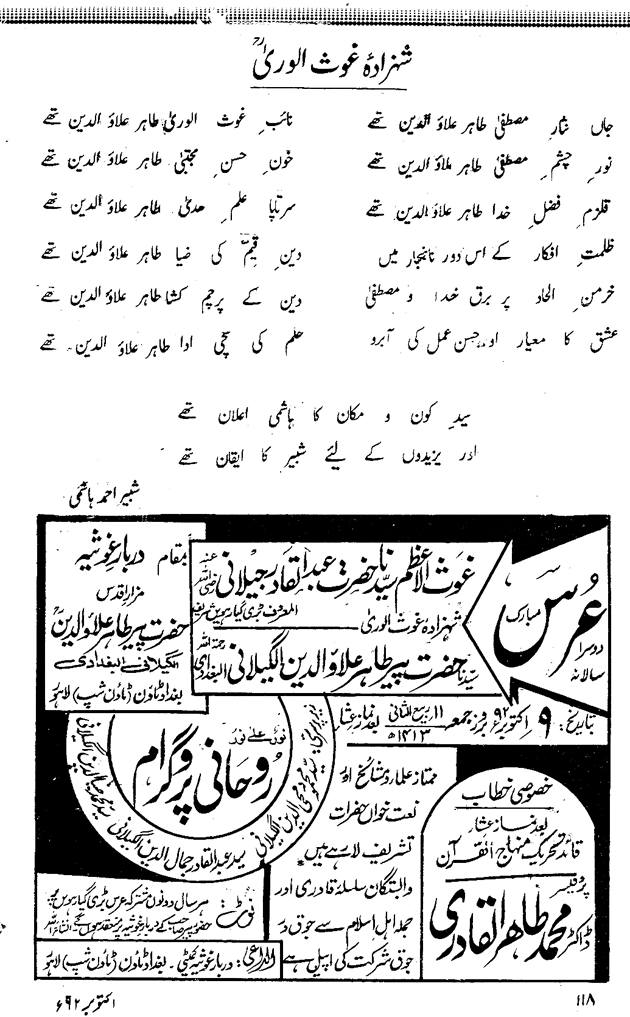 شہزادۂ غوث الوریٰؒ
جاں نثارِ مصطفیٰ طاہر علاؤ الدین تھے
نائبِ غوث الوریٰ طاہر علاؤ الدین تھے
نورِ چشمِ مصطفیٰ طاہر علاؤ الدین تھے
خونِ حسنِ مجتبیٰ طاہر علاؤ الدین تھے
قلزمِ فضلِ خدا طاہر علاؤ الدین تھے
سرتاپا علمِ ھدیٰ طاہر علاؤ الدین تھے
ظلمتِ افکار کے اس دورِ ناہنجار میں
دینِ قیّم کی ضیا طاہر علاؤ الدین تھے
خرمنِ الحاد پر برق خدا و مصطفیٰ
دین کے پرچم کشا طاہر علاؤ الدین تھے
عشق کا معیار اور حسن عمل کی آبرو
حلم کی سچی ادا طاہر علاؤ الدین تھے
سیدِ کون و مکان کا ہاشمی اعلان تھے
اور یزیدوں کے لئے شبیر کا ایقان تھے
شبیر احمد ہاشمی
عُرس مبارک
دوسرا سالانہ
غوث الاعظم سیدنا حضرت عبدالقادر جیلانی رضی اللہ عنہ
المعروف بڑی گیارہویں شریف
شہزادہ غوث الوریٰ
سیدنا حضرت پیر طاہر علاؤ الدین الگیلانی البغدادی رحمۃ اللہ
بمقام دربارِ غوثیہ
مزار اقدس
حضرت پیر طاہر علاؤ الدینؒ
الگیلانی البغدادی
بغداد ٹاؤن (ٹاؤن شپ) لاہور
تاریخ: ۹ اکتوبر ۹۲ بروز جمعہ ۱۱ ربیع الثانی ۱۴۱۳ھ بعد نماز عشاء
نورٌ علیٰ نور
رُوحانی پروگرام
سید محمود محی الدین الگیلانی
سید عبدالقادر جمال الدین الگیلانی
سید محمد ضیاء الدین الگیلانی
ممتاز علماء و مشائخ اور
نعت خوان حضرات
تشریف لا رہے ہیں
وابستگان سلسلہ قادری اور
جملہ اہل اسلام سے جوق در
جوق شرکت کی اپیل ہے
خصوصی خطاب
بعد نماز عشاء
قائد تحریک منہاج القرآن
پروفیسر
ڈاکٹر محمد طاہر القادری
نوٹ: ہر سال دونوں مشترکہ عرس بڑی گیارہویں
حضور پیر صاحب کے دربار غوثیہ پر منعقد ہوں گے انشاء اللہ
الداعی: دربار غوثیہ کمیٹی۔ بغداد ٹاؤن (ٹاؤن شپ) لاہور
۱۱۸
اکتوبر ۹۲ء